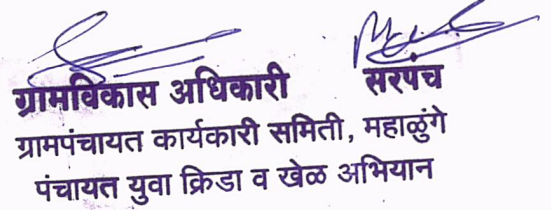 ग्रामविकास अधिकारी सरपंच
ग्रामपंचायत कार्यकारी समिती, महाळुंगे
पंचायत युवा क्रिडा व खेळ अभियान